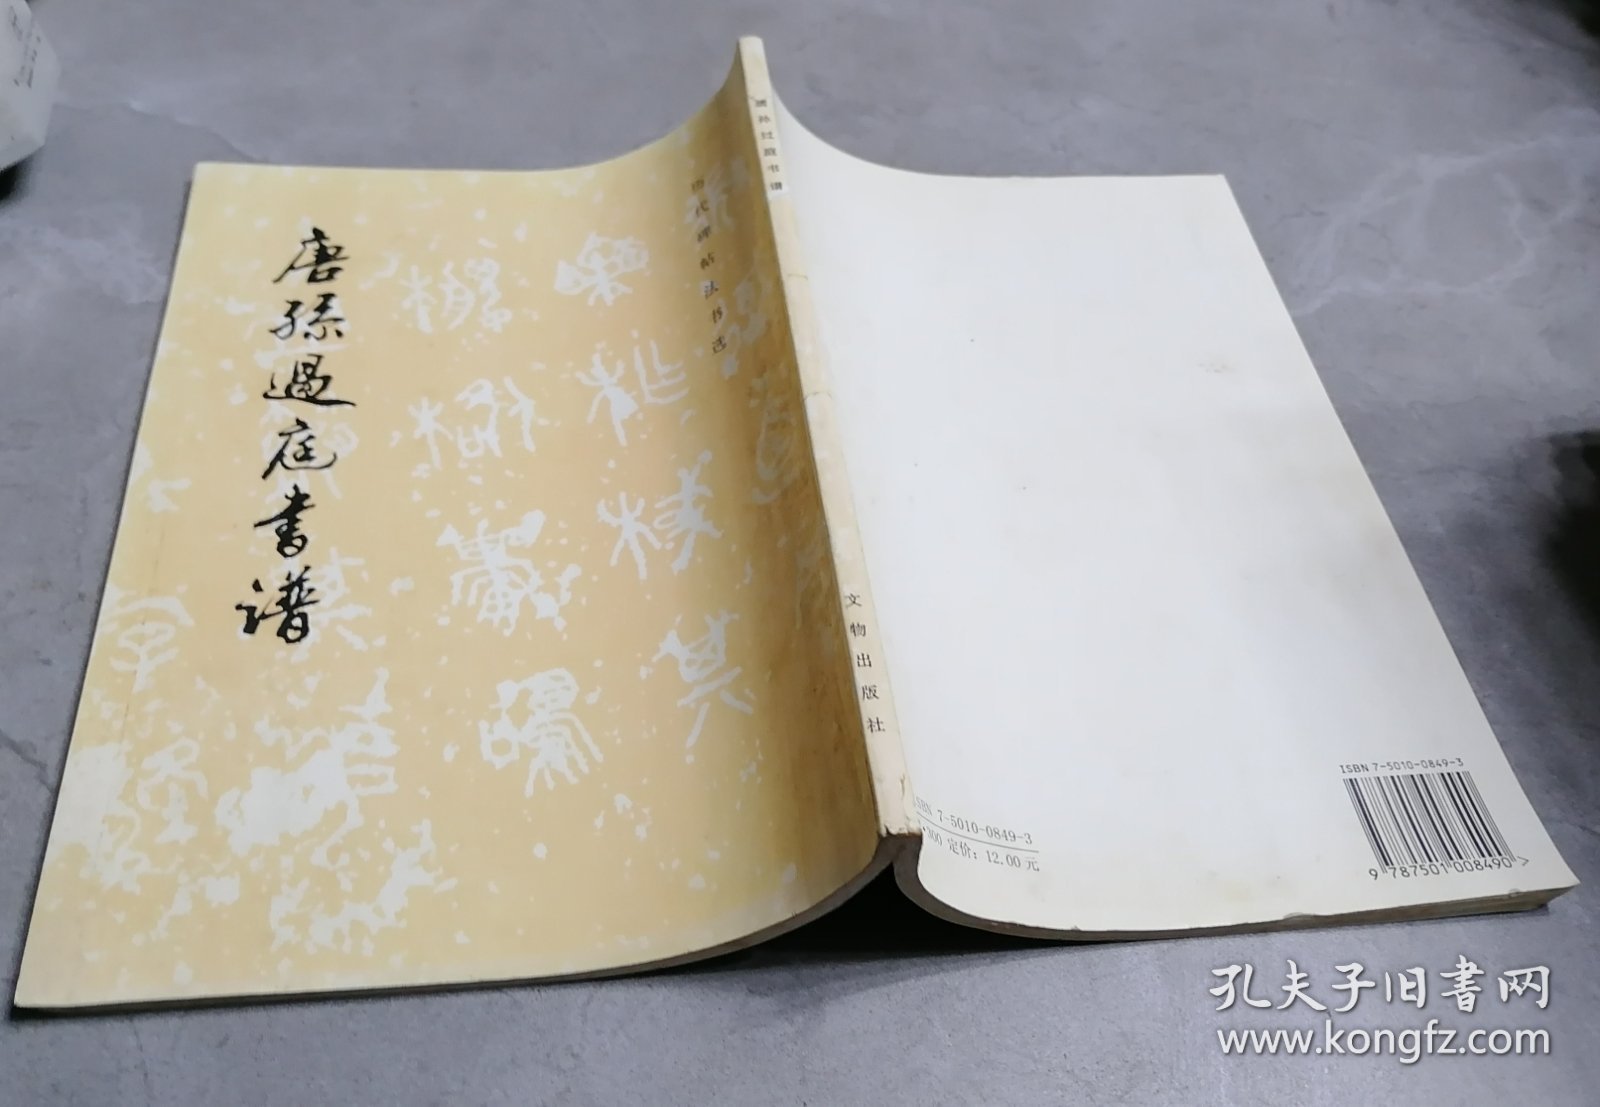 唐孫過庭書譜
历代碑帖法书选
唐孙过庭书谱
文物出版社
ISBN 7-5010-0849-3
定价：12.00元
ISBN 7-5010-0849-3
9 787501 008490 >
孔夫子旧书网
www.kongfz.com